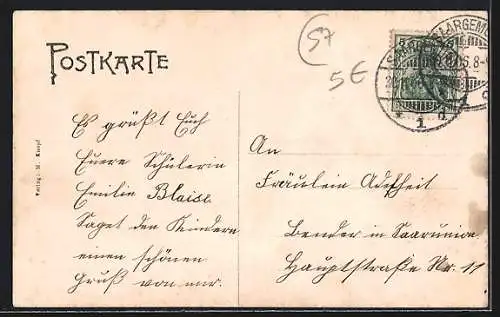 POSTKARTE
57
5€
5
SAARGEM
1
Verlag: M. Kampf
Es grüßt Euch
Euere Schülerin
Emilie Blaise
Saget den Kindern
einen schönen
Gruß von mir.
An
Fräulein Adelheit
Bender in Saarunion
Hauptstraße Nr. 11